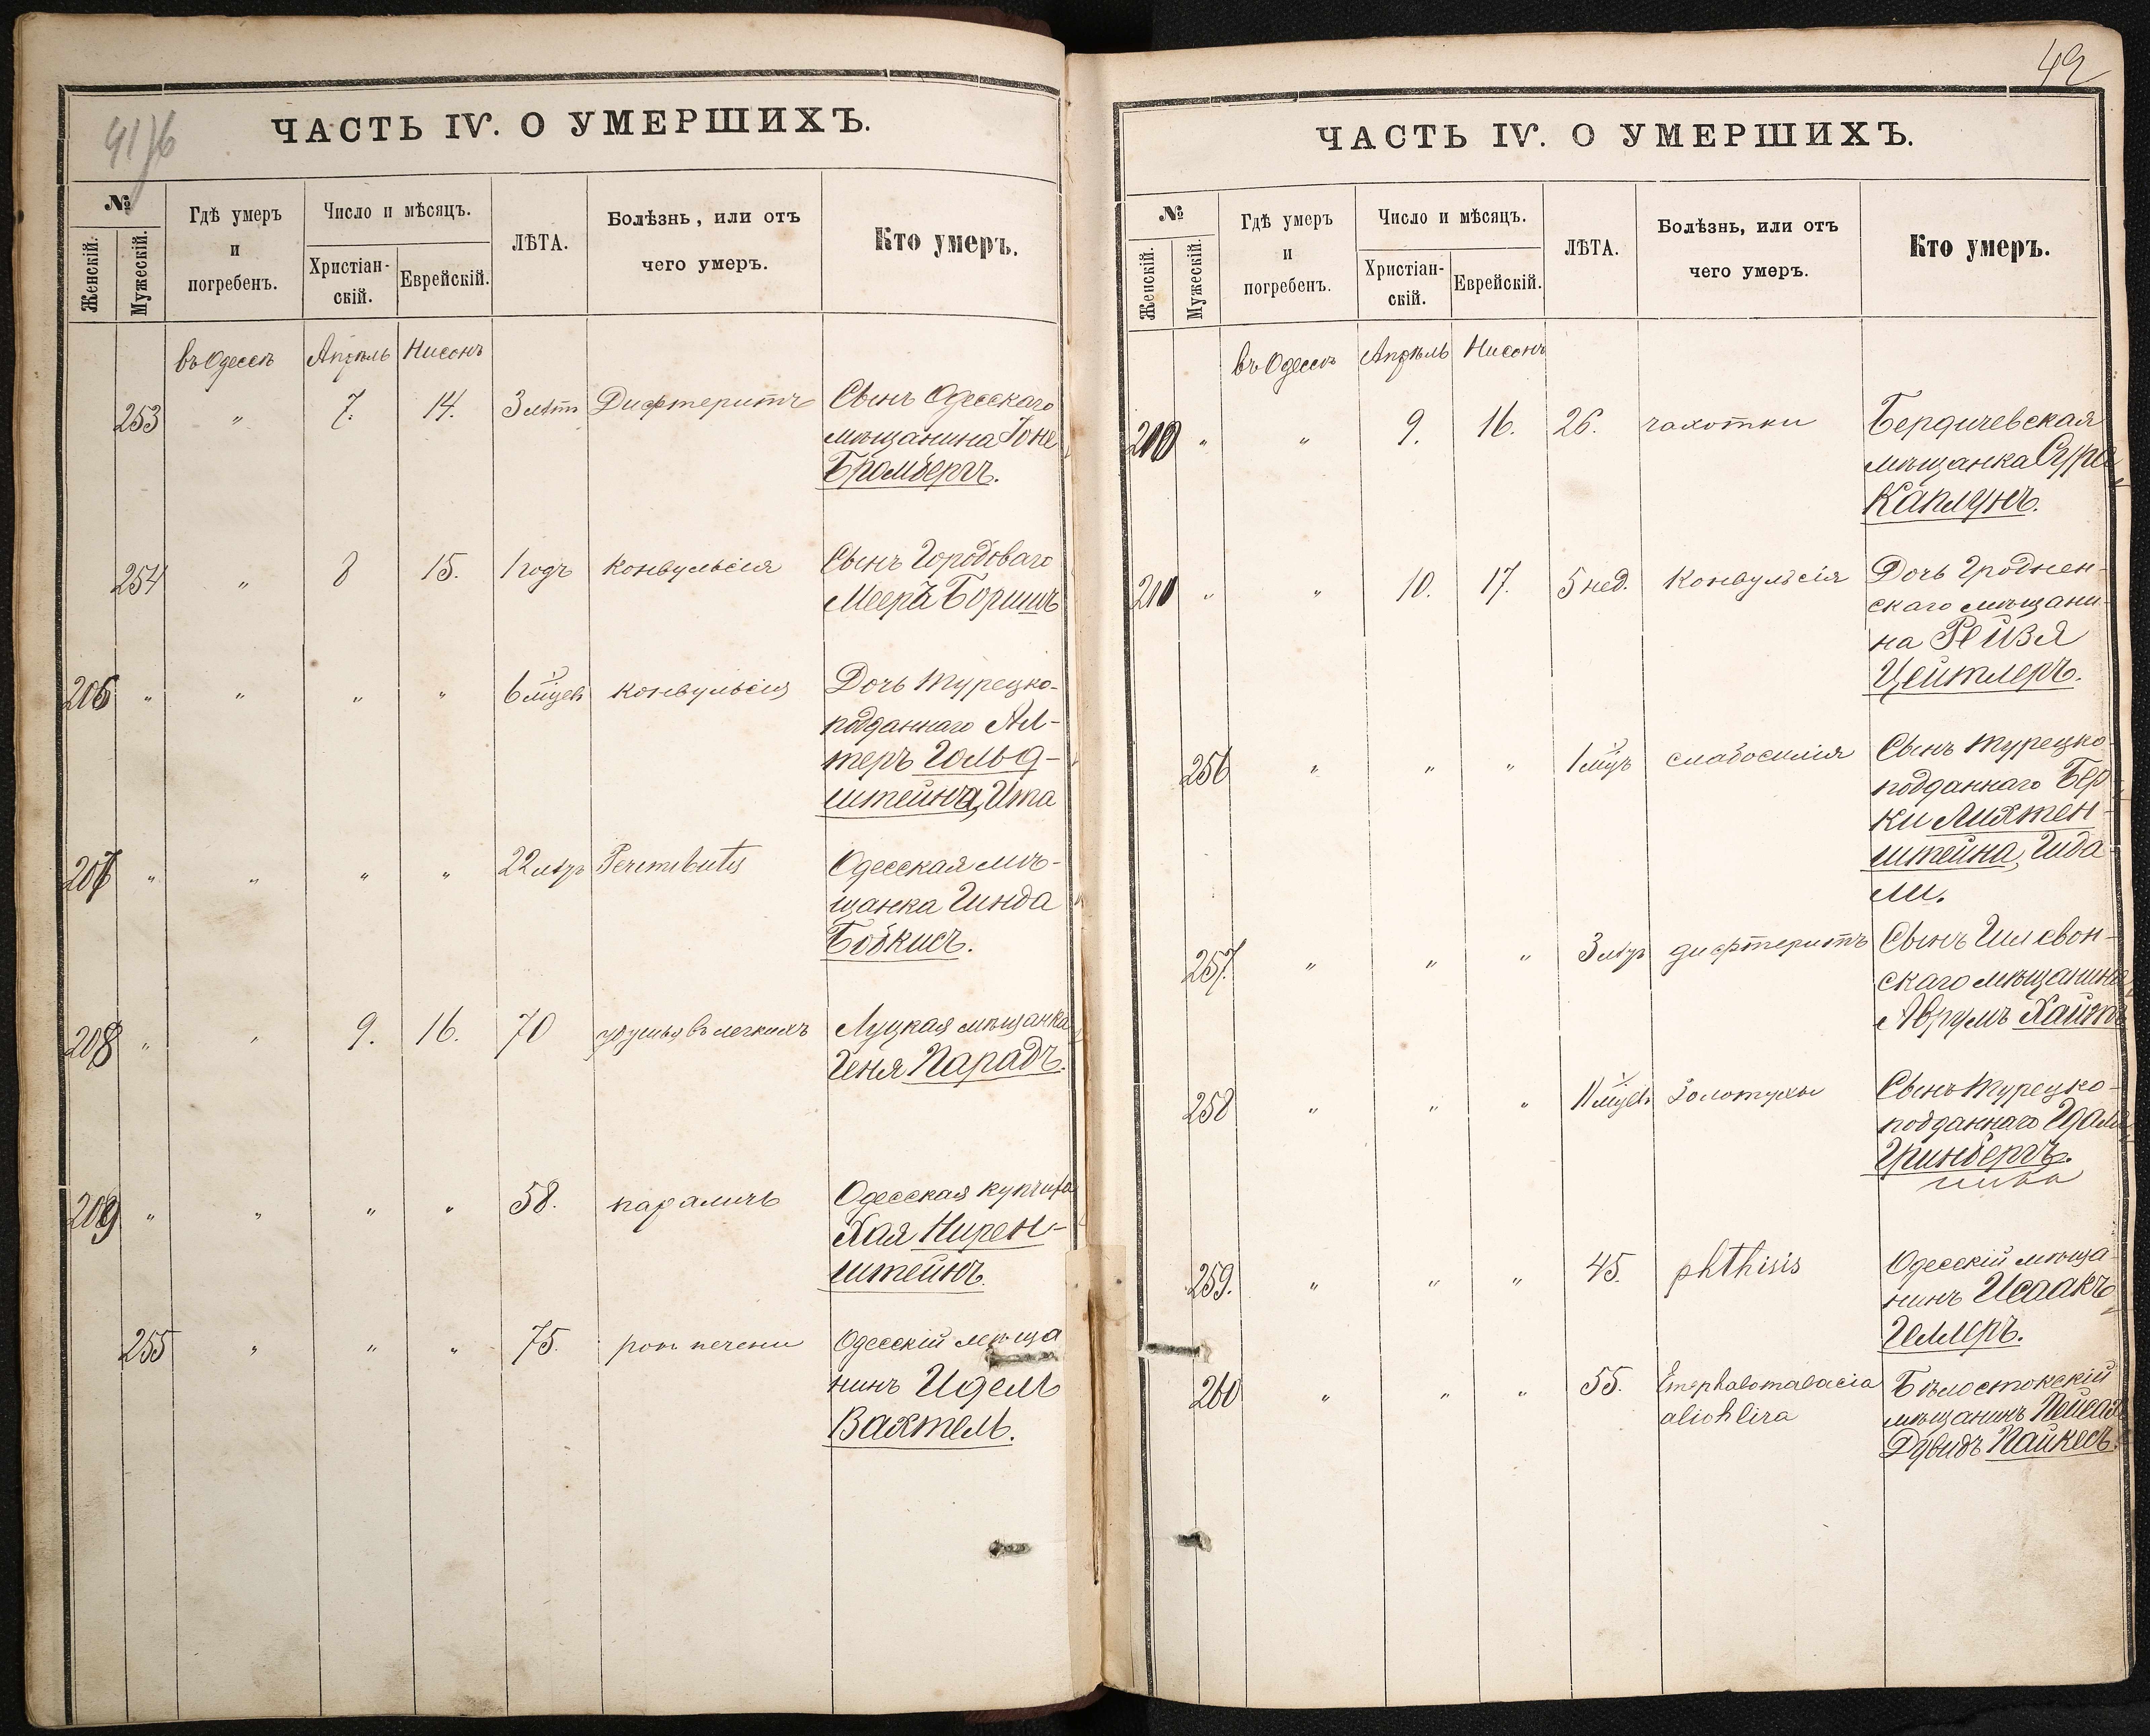 41 76
ЧАСТЬ IV. О УМЕРШИХЪ.
№
Женскій.
Мужескій.
Гдѣ умеръ
и
погребенъ.
Число и мѣсяцъ.
Христіан-
скій.
Еврейскій.
ЛѢТА.
Болѣзнь, или отъ
чего умеръ.
Кто умеръ.
въ Одессѣ Апрѣль Нисонъ
253 " 7. 14. 3 лѣтъ Дифтеритъ Сынъ Одесскаго
мѣщанина Іоне
Бромбергъ.
254 " 8 15. 1 годъ конвульсія Сынъ Городоваго
Меера Боришъ
206 " " " " 6 мцевъ конвульсія Дочь турецко-
подданнаго Ал-
теръ Гольд-
штейна, Ита
207 " " " " 22 Одесская мѣ-
щанка Гинда
Бобкисъ.
208 " " 9. 16. 70 въ легкихъ Луцкая мѣщанка
Геня Парадъ.
209 " " " " 58. параличъ Одесская купчиха
Хая Нирен-
штейнъ.
255 " " " 75. печени Одесскій мѣща
нинъ Идель
Вахтель.
42
ЧАСТЬ IV. О УМЕРШИХЪ.
№
Женскій.
Мужескій.
Гдѣ умеръ
и
погребенъ.
Число и мѣсяцъ.
Христіан-
скій.
Еврейскій.
ЛѢТА.
Болѣзнь, или отъ
чего умеръ.
Кто умеръ.
въ Одессѣ Апрѣль Нисонъ
210 " " 9. 16. 26. чахотки Бердичевская
мѣщанка Сура
Каплунъ.
211 " " 10. 17. 5 нед. Конвульсія Дочь Гроднен-
скаго мѣщани-
на Рейзя
Цейтлеръ.
256 " " " 1 мцъ слабосилія Сынъ турецко-
подданнаго Бер-
ки Лихтен-
штейна, Гида-
ли.
257. " " " 3 дифтеритъ Сынъ
скаго мѣщанина
Аврумъ
258 " " " 11 мцевъ Золотухи Сынъ турецко-
подданнаго
Гринбергъ.
259. " " " 45. phthisis Одесскій мѣща-
нинъ Исаакъ
Геллеръ.
260 " " " 55. Encephalomalacia Бѣлостокскій
мѣщанинъ Пейсах
Дувидъ Пайкесъ.